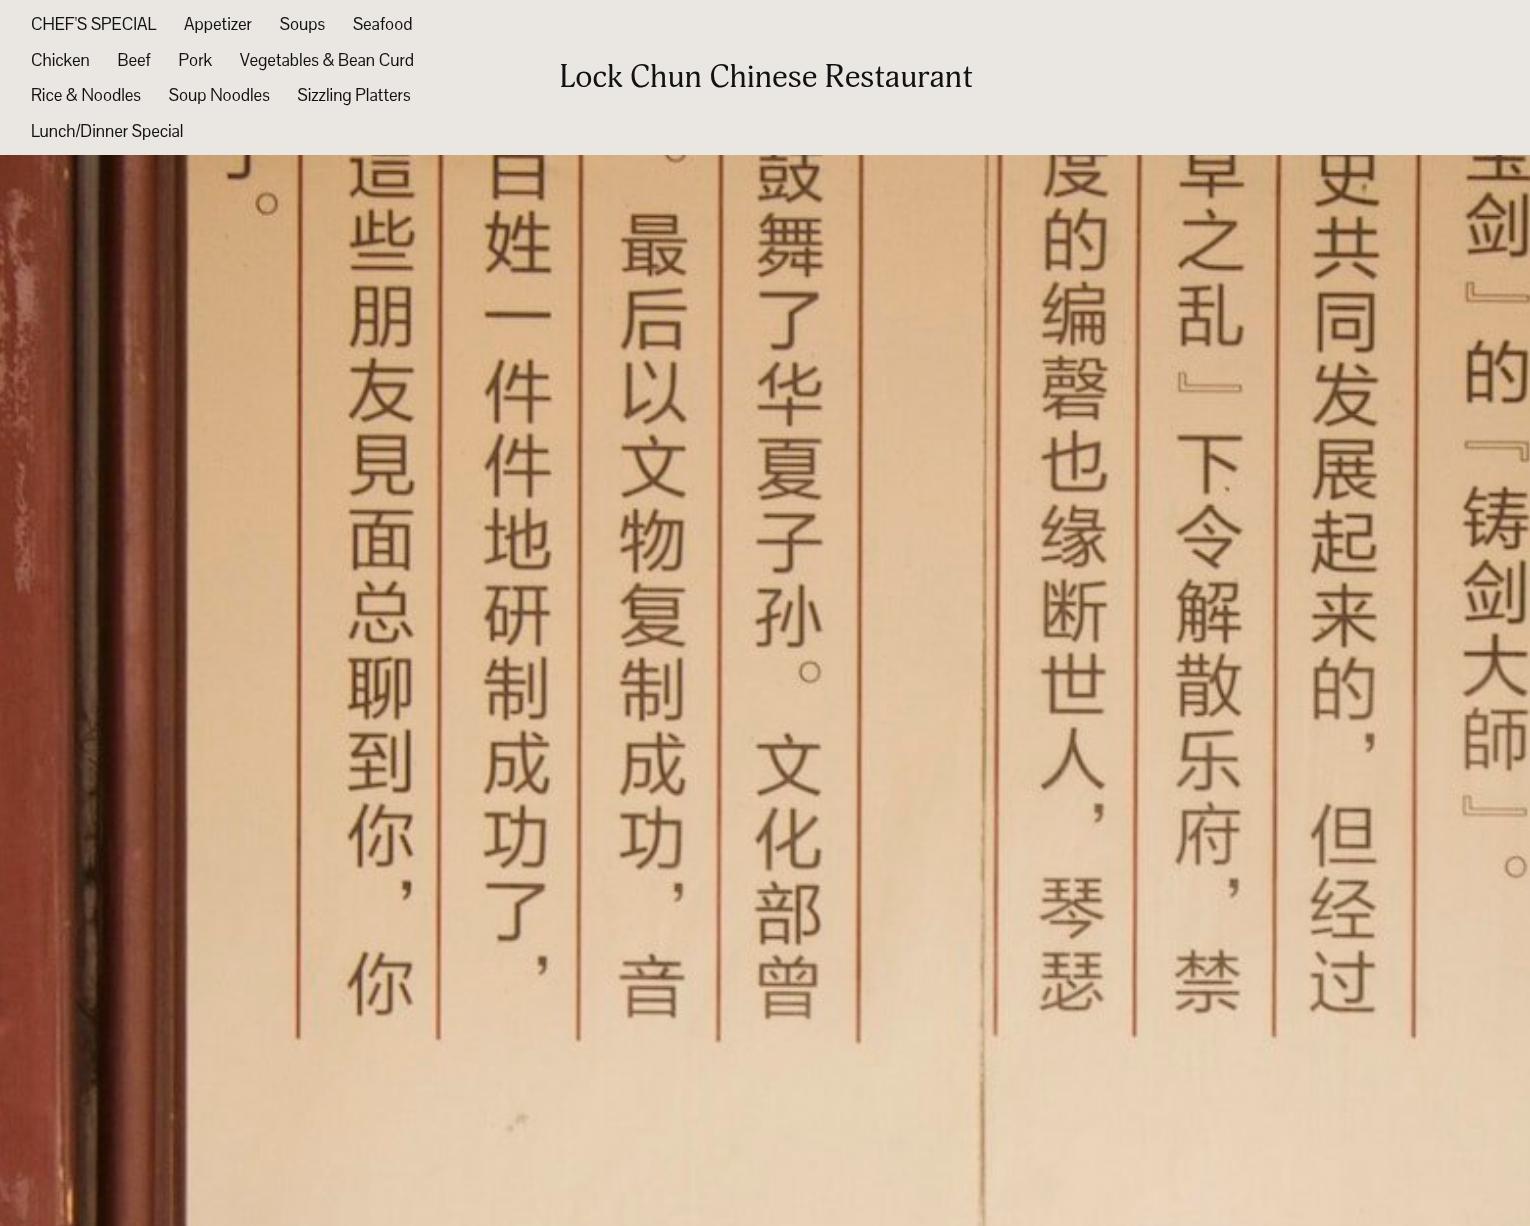 CHEF'S SPECIAL Appetizer Soups Seafood
Chicken Beef Pork Vegetables & Bean Curd
Rice & Noodles Soup Noodles Sizzling Platters
Lunch/Dinner Special
Lock Chun Chinese Restaurant
剑』的『铸剑大師』。
史共同发展起来的，但经过
章之乱』下令解散乐府，禁
度的编磬也缘断世人，琴瑟
鼓舞了华夏子孙。文化部曾
。最后以文物复制成功，音
百姓一件件地研制成功了，
這些朋友見面总聊到你，你
。